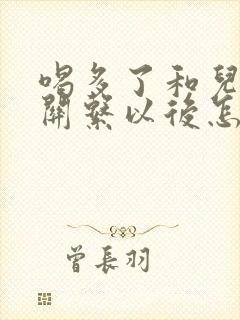 喝多了和兒
關繫以後怎
曾長羽